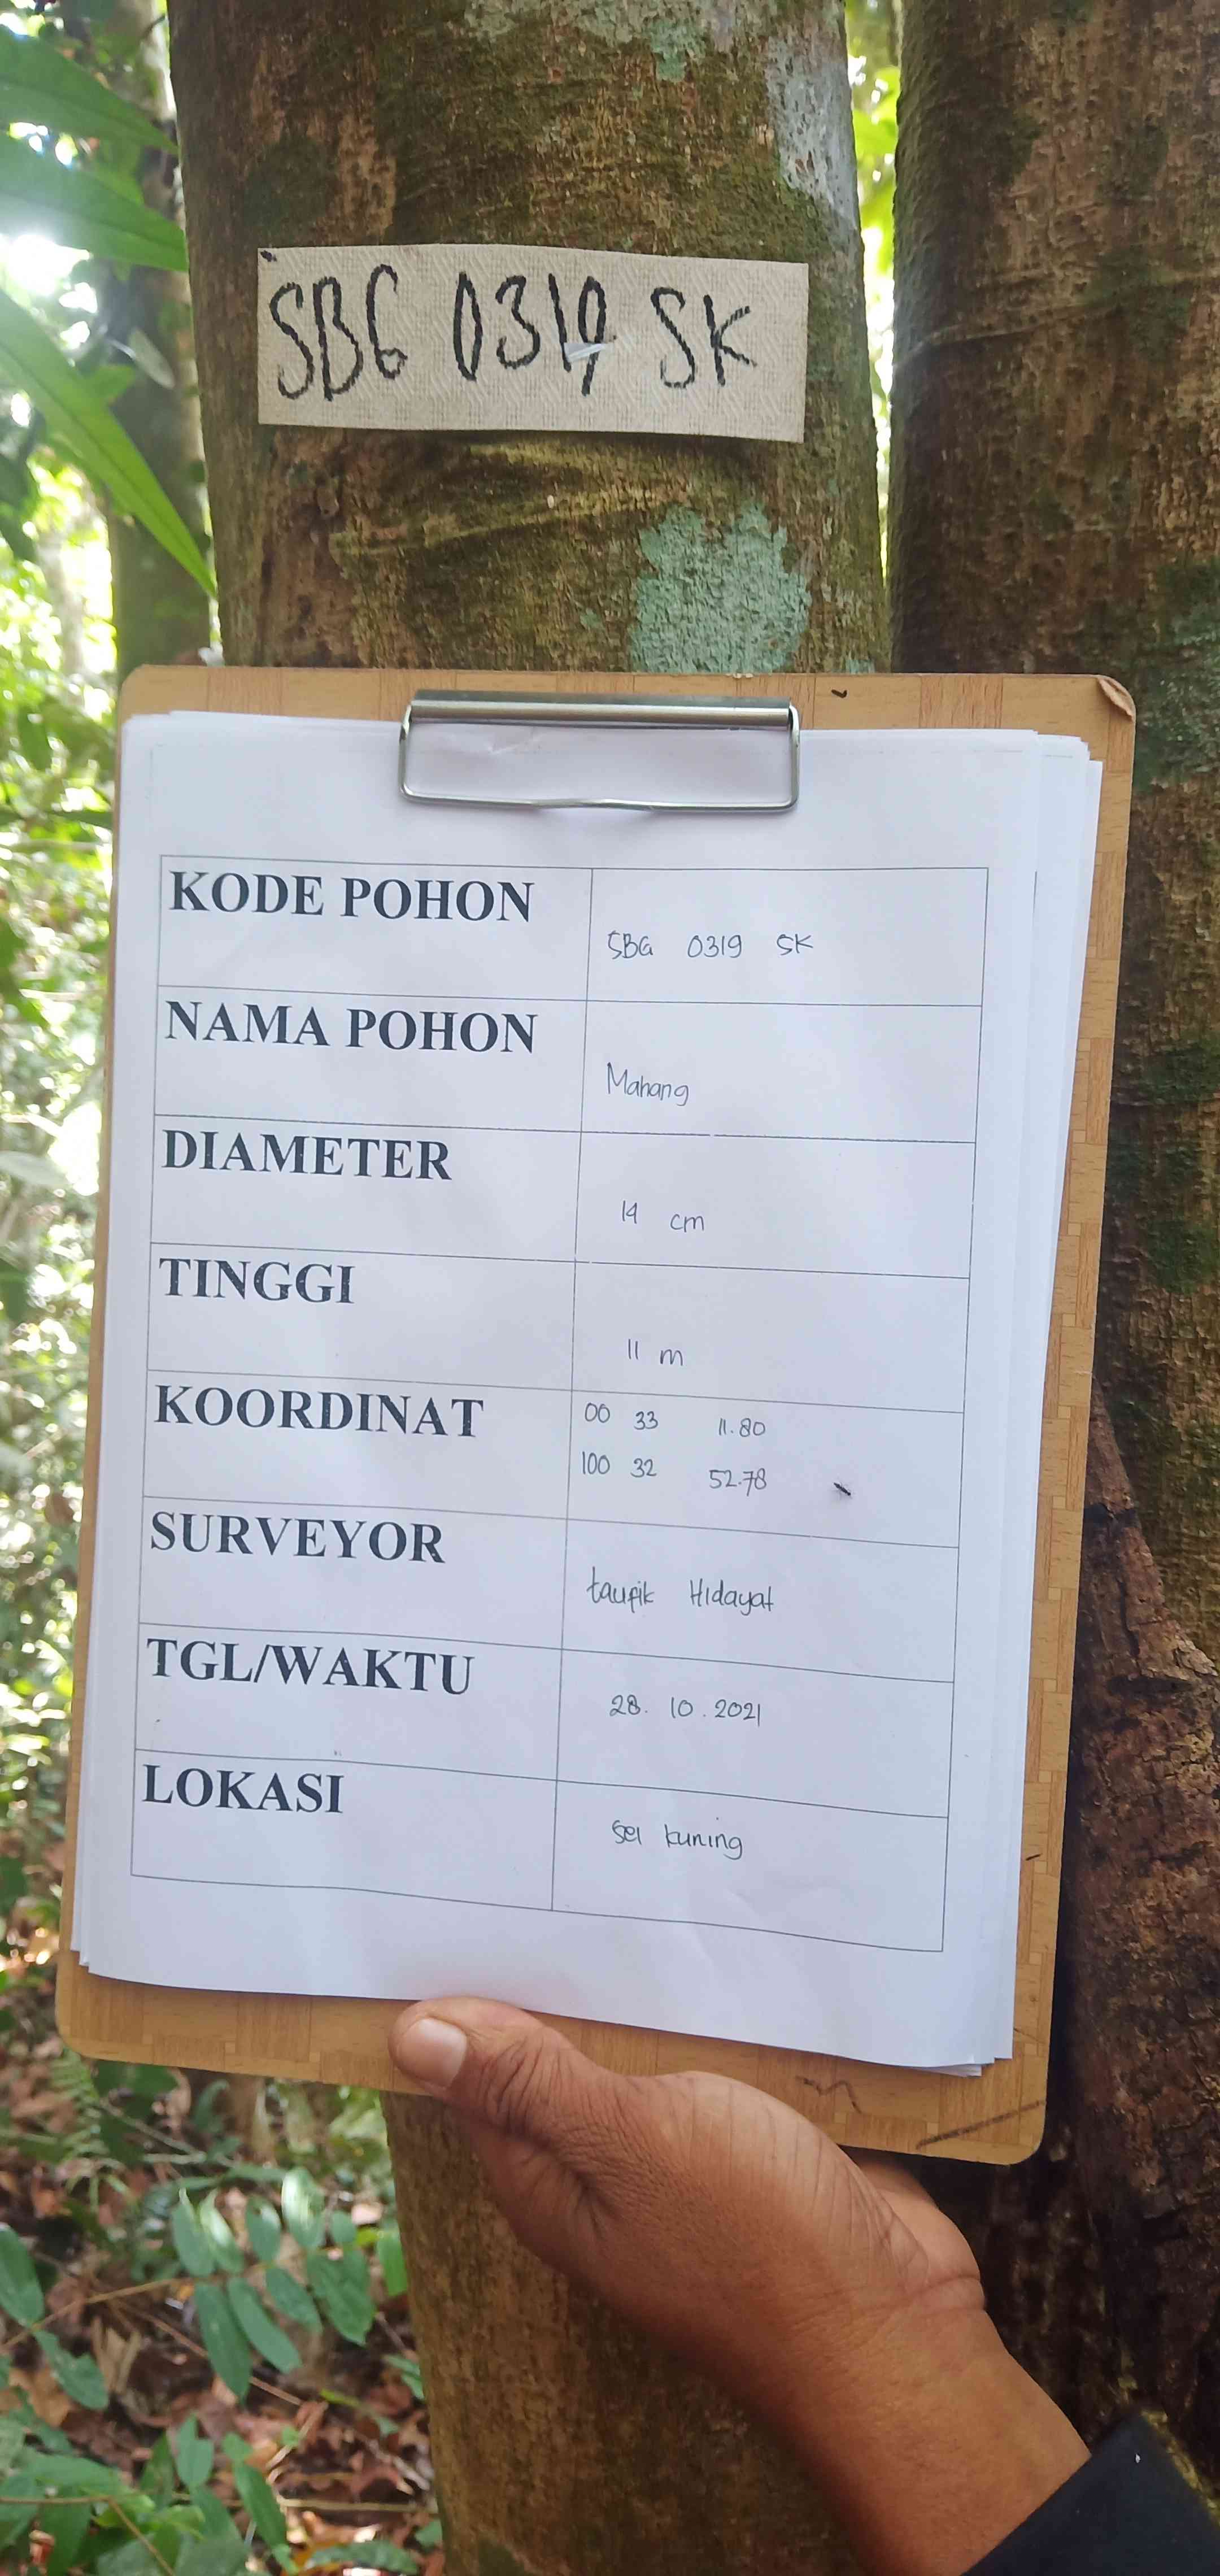 SBG 0319 SK
KODE POHON
SBG 0319 SK
NAMA POHON
Mahang
DIAMETER
14 cm
TINGGI
11 m
KOORDINAT
00 33 11.80
100 32 52.78
SURVEYOR
taufik Hidayat
TGL/WAKTU
28. 10. 2021
LOKASI
Sei kuning